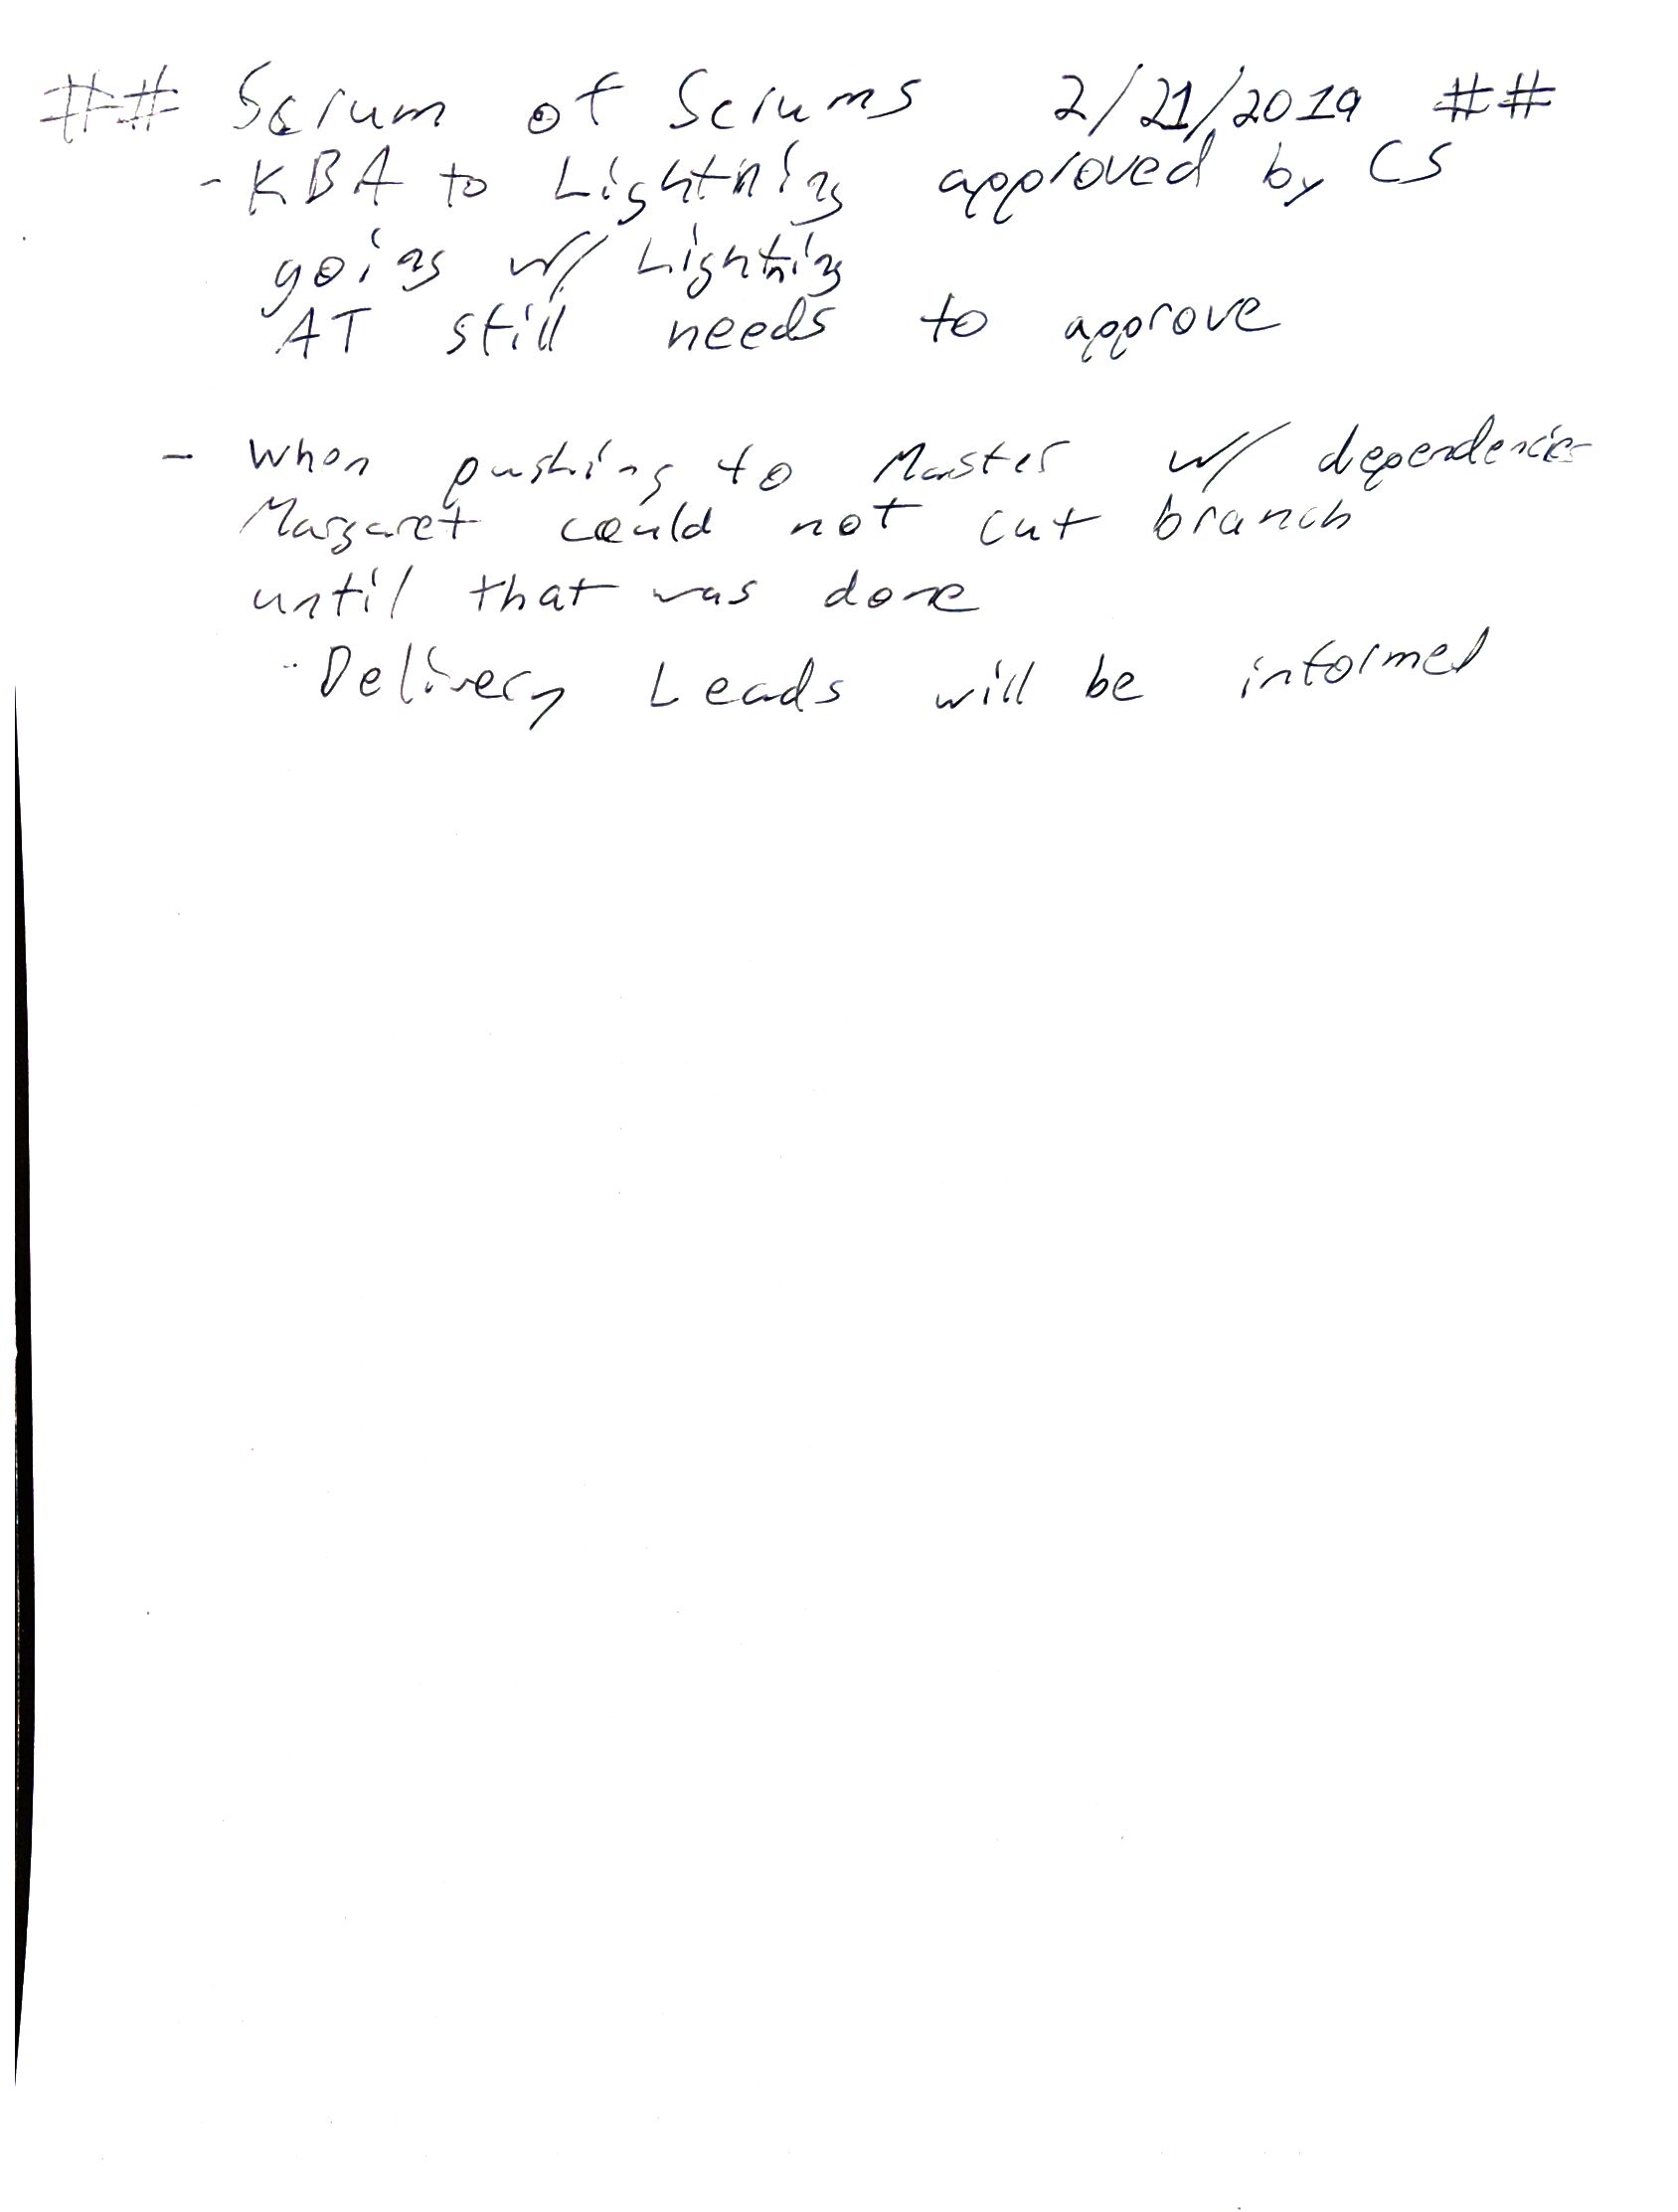 ## Scrum of Scrums 2/21/2019 ##
- KBA to Lightning approved by CS
going w/ Lightning
AT still needs to approve
- When pushing to Master w/ dependencies
Margaret could not cut branch
until that was done
- Delivery Leads will be informed